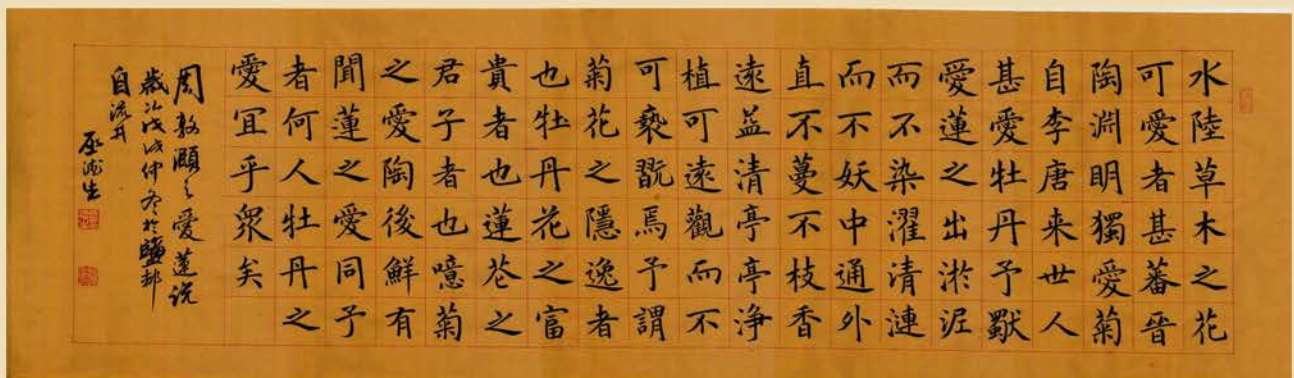 水陸草木之花
可愛者甚蕃晉
陶淵明獨愛菊
自李唐来世人
甚愛牡丹予
愛蓮之出淤泥
而不染濯清漣
而不妖中通外
直不蔓不枝香
遠益清亭亭淨
植可遠觀而不
可褻翫焉予謂
菊花之隱逸者
也牡丹花之富
貴者也蓮花之
君子者也噫菊
之愛陶後鮮有
聞蓮之愛同予
者何人牡丹之
愛宜乎眾矣
周敦頤之愛蓮說
歲次戊戌仲冬於鹽都
自流井